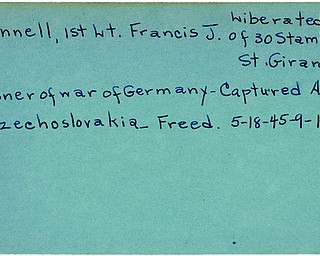 Liberated
nnell, 1st Lt. Francis J. of 30 Stam
St. Giran
ner of war of Germany - Captured A
zechoslovakia - Freed. 5-18-45-9-1